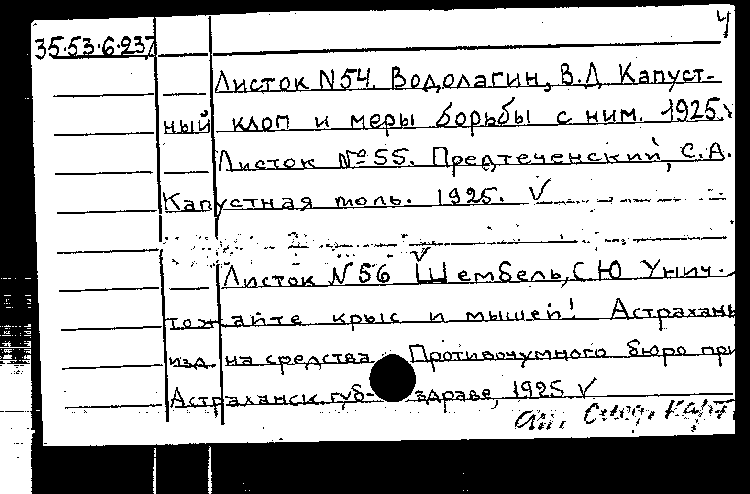 4
35.53.6.237
Листок N54. Водолагин, В.Д Капуст-
ный клоп и меры борьбы с ним. 1925. v
Листок №55. Предтеченский, С.А.
Капустная моль. 1925. V
Листок N56 Шембель, С Ю Унич-
тожайте крыс и мышей! Астрахань
изд. на средства Противочумного бюро при
Астраханск. губ- здраве, 1925 V
след. карт